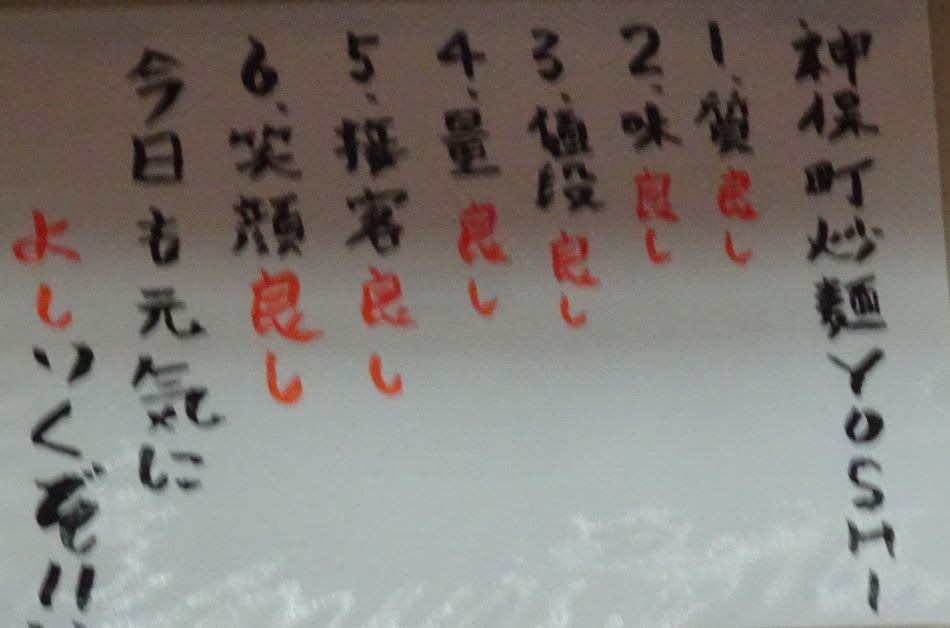 神保町炒麺YOSHI
1.質良し
2.味良し
3.値段良し
4.量良し
5.接客良し
6.笑顔良し
今日も元気に
よしいくぞ!!